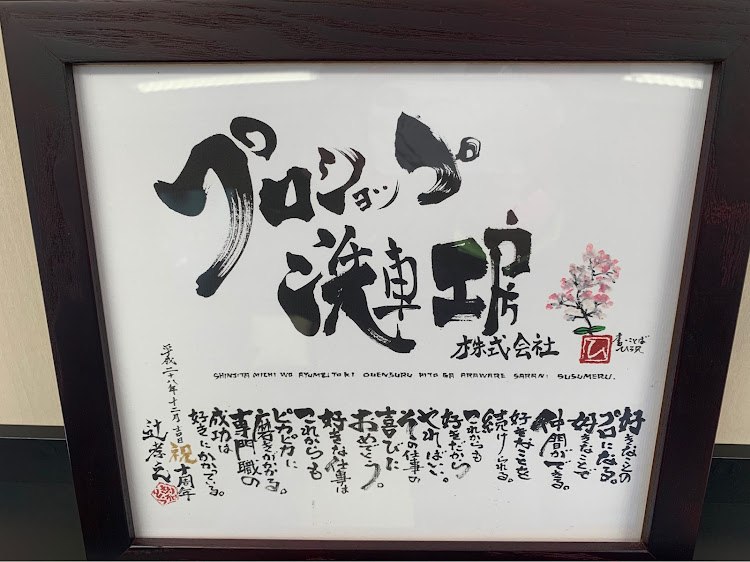 プロショップ
洗車工房
株式会社
書・ことば
ひろ沢
ひ
SHINJITA MICHI WO AYUMEBA TOKI OUENSURU HITO GA ARAWARE SARANI SUSUMERU.
好きなことの
プロになる。
好きなことで
仲間ができる。
好きなことを
続けられる。
これからも
好きだから
やればいい。
その仕事の
喜びに
おめでとう。
好きな仕事は
これからも
ピカピカに
磨きがかかる。
専門職の
成功は
好きにかかっている。
祝十周年
平成二十八年十二月吉日
辻孝之